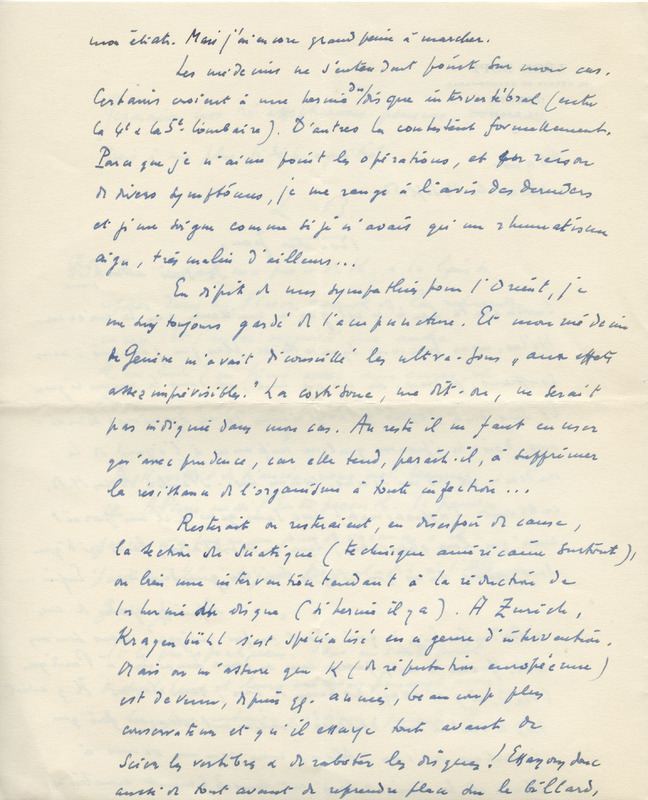 mon état. Mais j'ai encore grand peine à marcher.
Les médecins ne s'entendent point sur mon cas.
Certains croient à une hernie du disque intervertébral (entre
la 4e et la 5e lombaire). D'autres la contestent formellement.
Parce que je n'aime point les opérations, et pr raison
de divers symptômes, je me range à l'avis des derniers
et je me soigne comme si je n'avais qu'un rhumatisme
aigu, très malin d'ailleurs...
En dépit de mes sympathies pour l'Orient, je
me suis toujours gardé de l'acupuncture. Et mon médecin
de Genève m'avait déconseillé les ultra-sons „aux effets
assez imprévisibles." La cortisone, me dit-on, ne serait
pas indiquée dans mon cas. Au reste il ne faut en user
qu'avec prudence, car elle tend, paraît-il, à supprimer
la résistance de l'organisme à toute infection...
Resterait ou resteraient, en désespoir de cause,
la section du sciatique (technique américaine surtout),
ou bien une intervention tendant à la réduction de
la hernie du disque (si hernie il y a). A Zurich,
Kragenbühl s'est spécialisé en ce genre d'intervention.
Mais on m'assure que K (de réputation européenne)
est devenu, depuis qq. années, beaucoup plus
conservateur et qu'il essaye tout avant de
scier les vertèbres et de raboter les disques! Essayons donc
aussi de tout avant de reprendre place sur le billard,